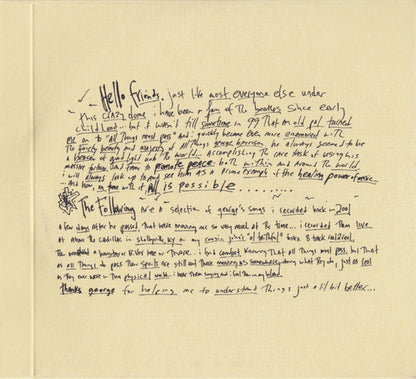 Hello Friends, just like most everyone else under
this crazy dome i have been a fan of the beatles since early
childhood... but it wasn't till sometime in 99 that an old pal turned
me on to "All Things Must Pass" and i quickly became even more enamored with
the beauty and majesty of all things george harrison. he always seemed to be
a beacon of good light in the world... accomplishing the rare task of using his
massive fortune and fame to promote peace both within and around the world.
i will always look up to and see him as a prime example of the healing power of music...
and how, in tune with it all is possible.........
The Following are a selection of george's songs i recorded back in 2001
a few days after he passed that were moving me so very much at the time... i recorded them live
at above the cadillac in shelbyville, ky on my cousin john's "ol faithful" 8 track reel 2 reel,
The a or two there. i find comfort knowing that all things must pass, but that
as all things do pass their spirits are still out there moving us somewhere doing what they do, just as real
as they ever were in this physical world. i hear them singing and i feel them in my blood.
thanks george for helping me to understand things just a lil bit better...